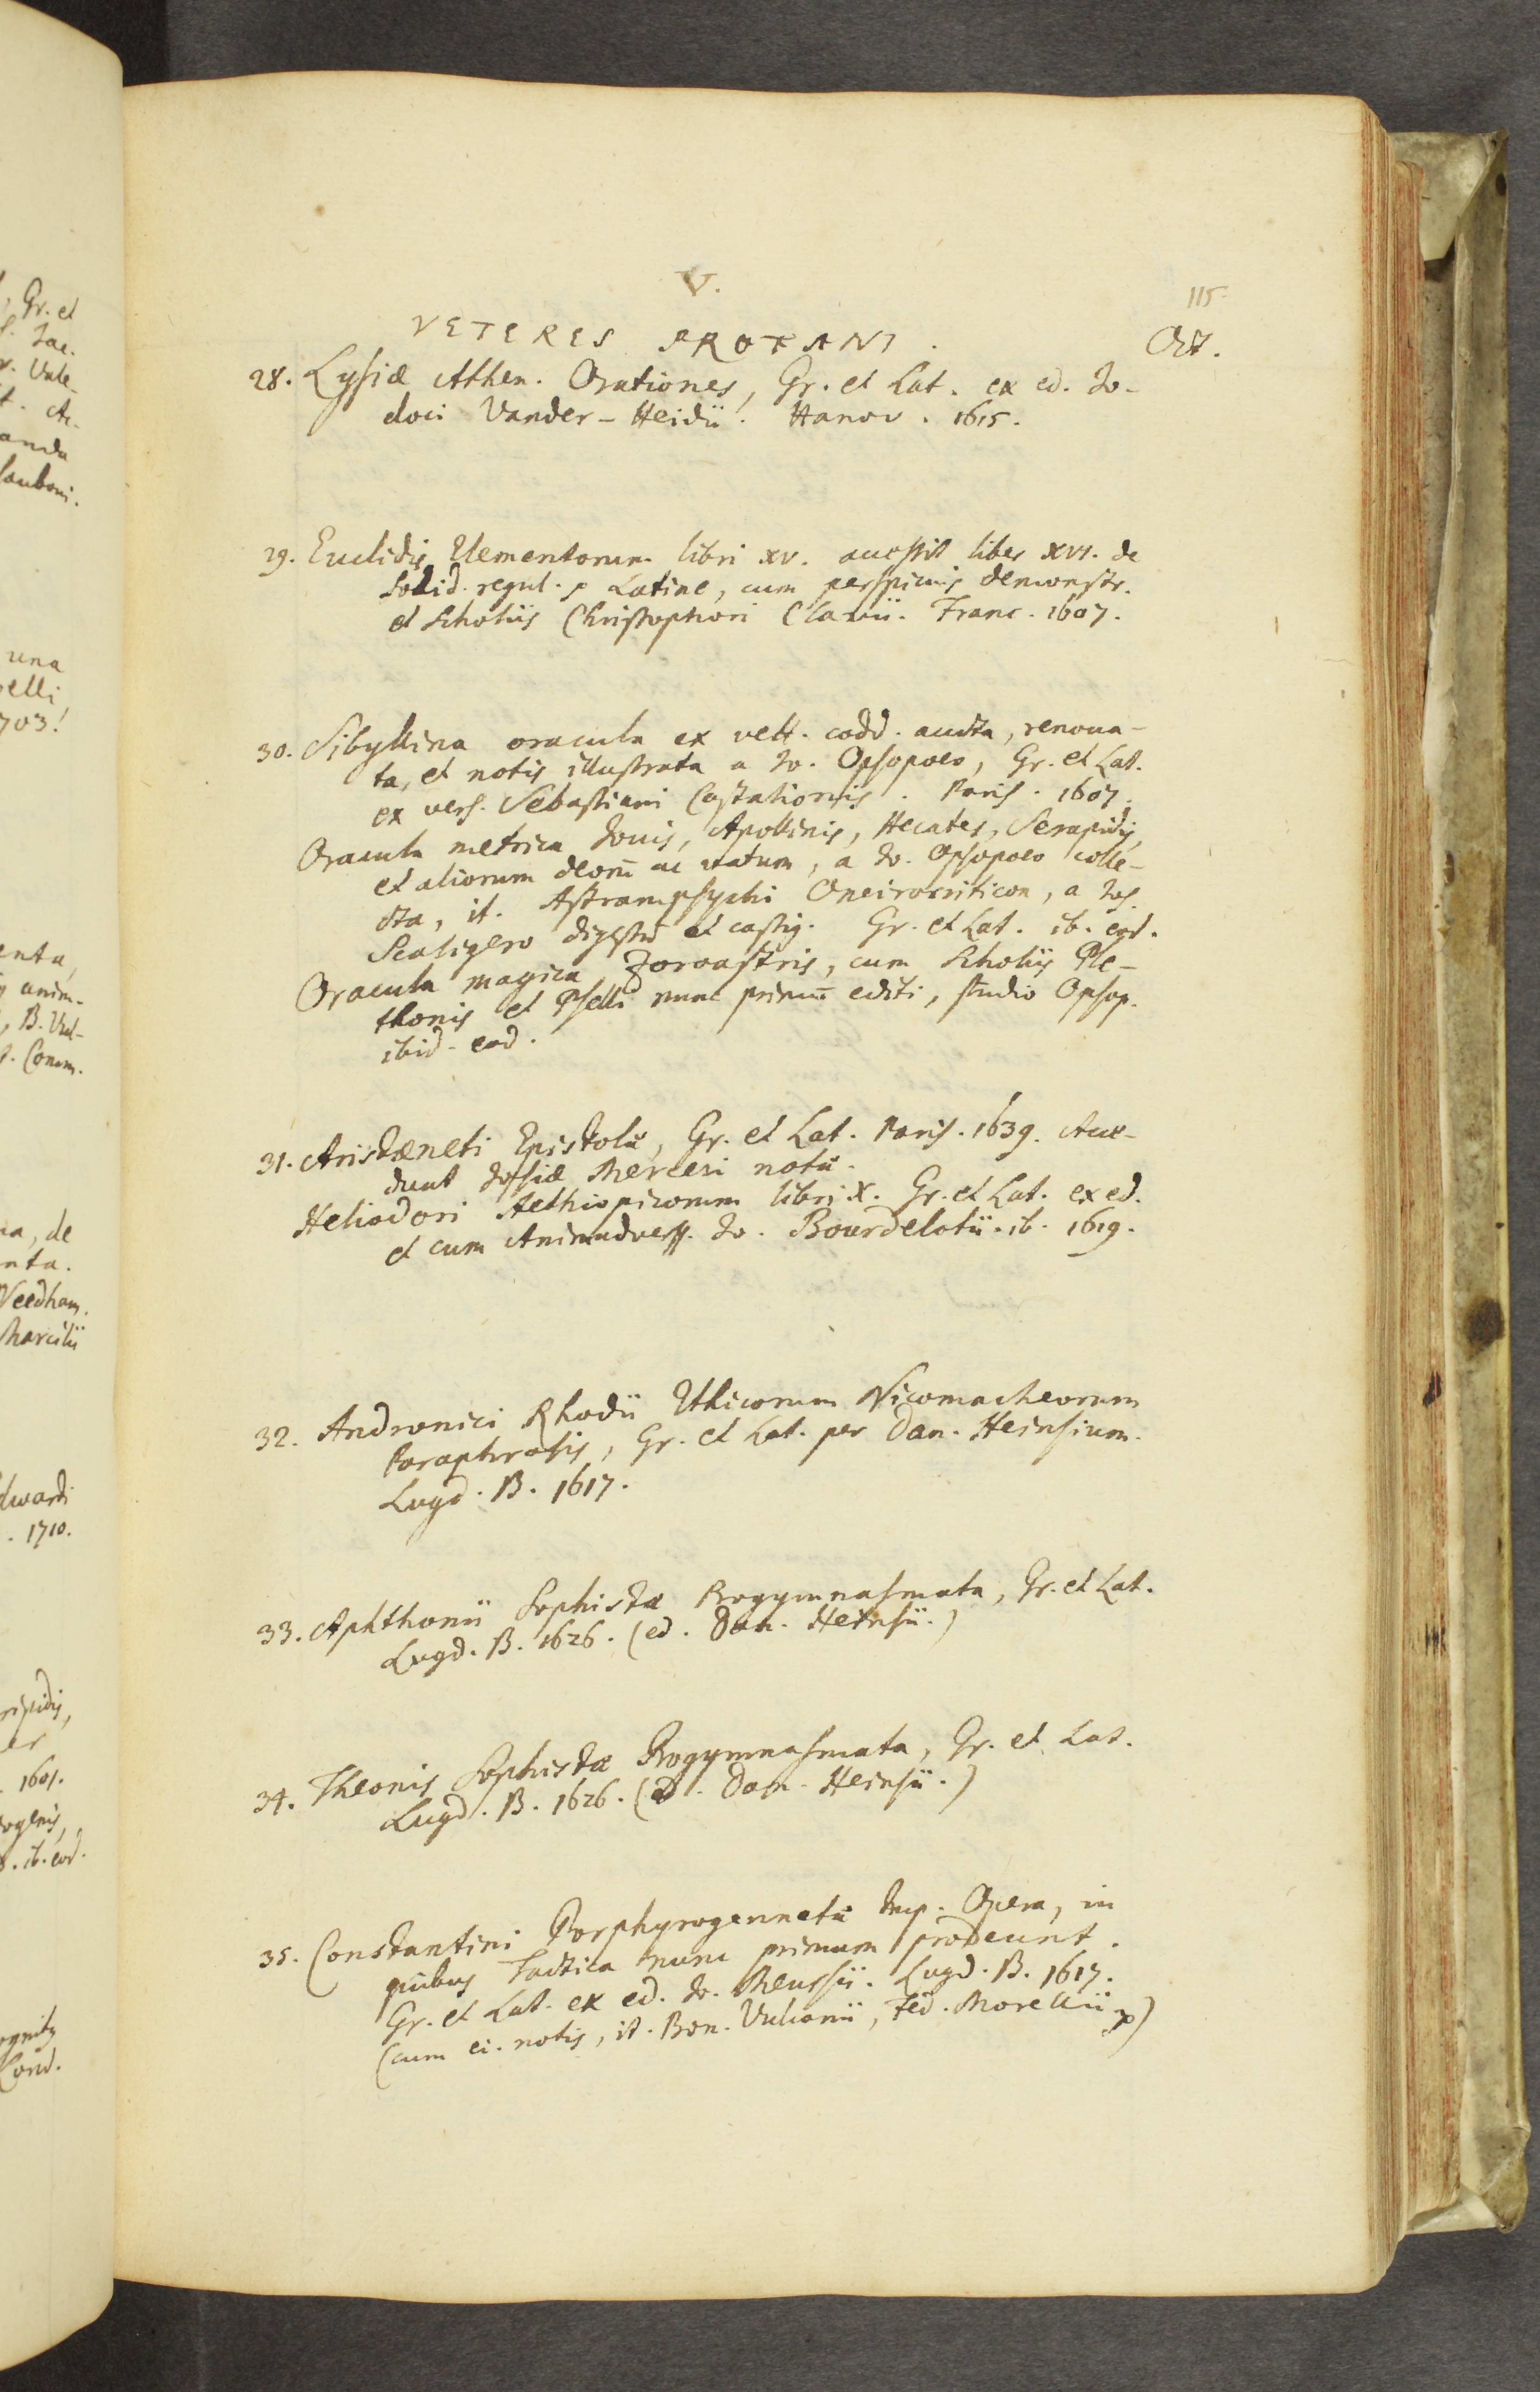 V.
115.
VETERES PROFANI.
Oct.
28. Lysiæ Athen. Orationes, Gr. et Lat. ex ed. Jo-
doci Vander-Heidii. Hanov. 1615.
29. Euclidis Elementorum libri XV. accessit liber XVI. de
Solid. regul. Latine, cum perspicuis demonstr.
et Scholiis Christophori Clavii. Franc. 1607.
30. Sibyllina oracula ex vett. codd. aucta, renoua-
ta, et notis illustrata a Jo. Opsopoeo, Gr. et Lat.
ex vers. Sebastiani Castalionis. Paris. 1607.
Oracula metrica Jouis, Apollinis, Hecates, Serapidis,
et aliorum deorū ac vatum, a Jo. Opsopoeo colle-
cta, it. Astrampsychi Oneirocriticon, a Jos.
Scaligero digestū et castig. Gr. et Lat. ib. eod.
Oracula magica Zoroastris, cum Scholiis Ple-
thonis et Pselli nunc primū editi, studio Opsop.
ibid. eod.
31. Aristæneti Epistolæ, Gr. et Lat. Paris. 1639. Acce-
dunt Josiæ Merceri notæ.
Heliodori Aethiopicorum libri X. Gr. et Lat. ex ed.
et cum Animadverss. Jo. Bourdelotii. ib. 1619.
32. Andronici Rhodii Ethicorum Nicomacheorum
Paraphrasis, Gr. et Lat. per Dan. Heinsium.
Lugd. B. 1617.
33. Aphthonii Sophistæ Progymnasmata, Gr. et Lat.
Lugd. B. 1626. (ed. Dan. Heinsii.)
34. Theonis Sophistæ Progymnasmata, Gr. et Lat.
Lugd. B. 1626. (ed. Dan. Heinsii.)
35. Constantini Porphyrogennetæ Imp. Opera, in
quibus Tactica nunc primum prodeunt.
Gr. et Lat. ex ed. Jo. Meursii. Lugd. B. 1617.
(cum ei. notis, it. Bon. Vulcanii, Fed. Morellii)